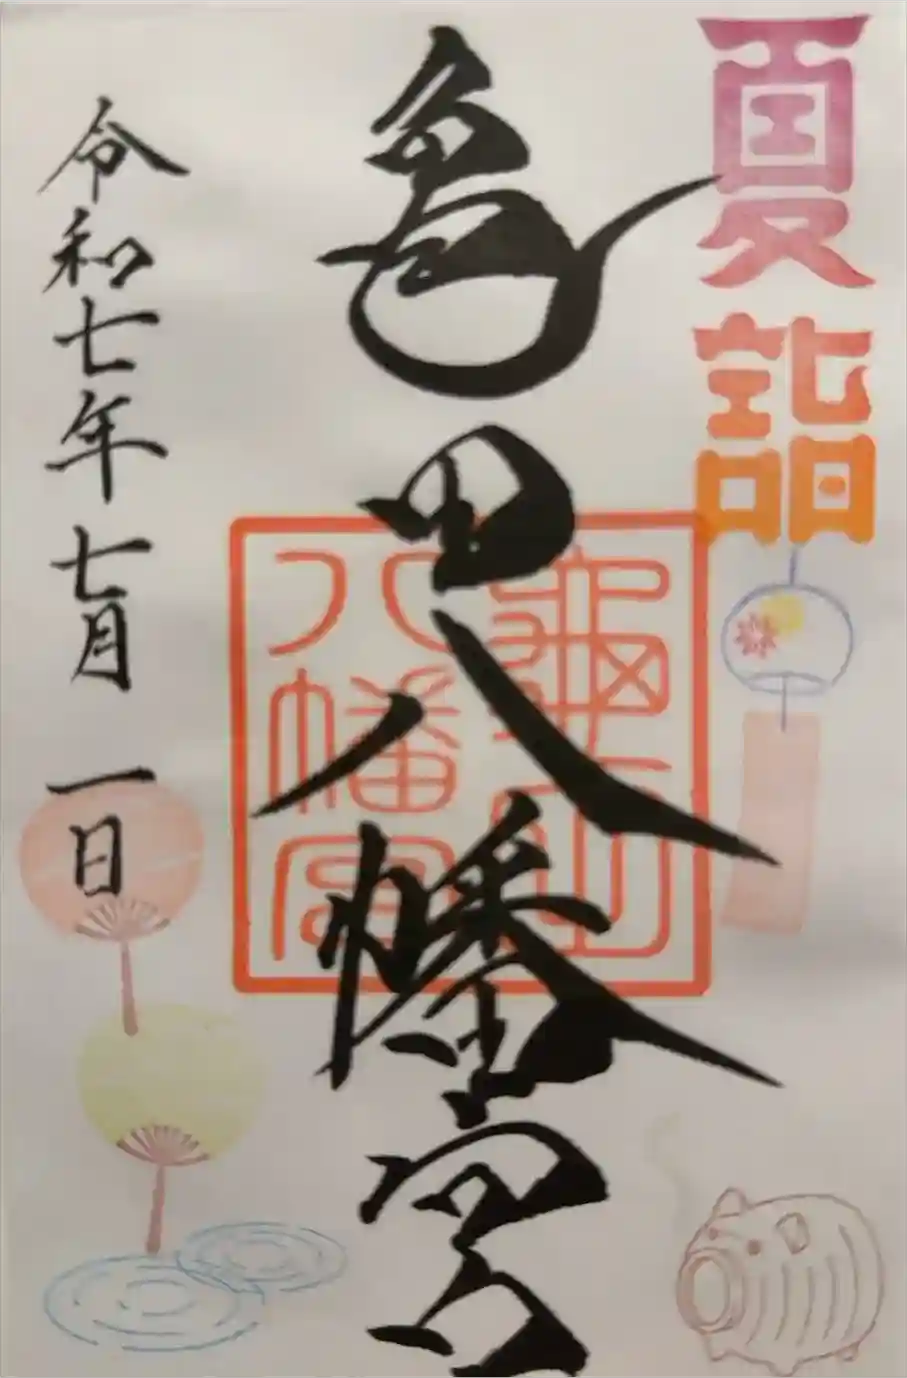 夏詣
亀田八幡宮
令和七年七月一日
八幡宮